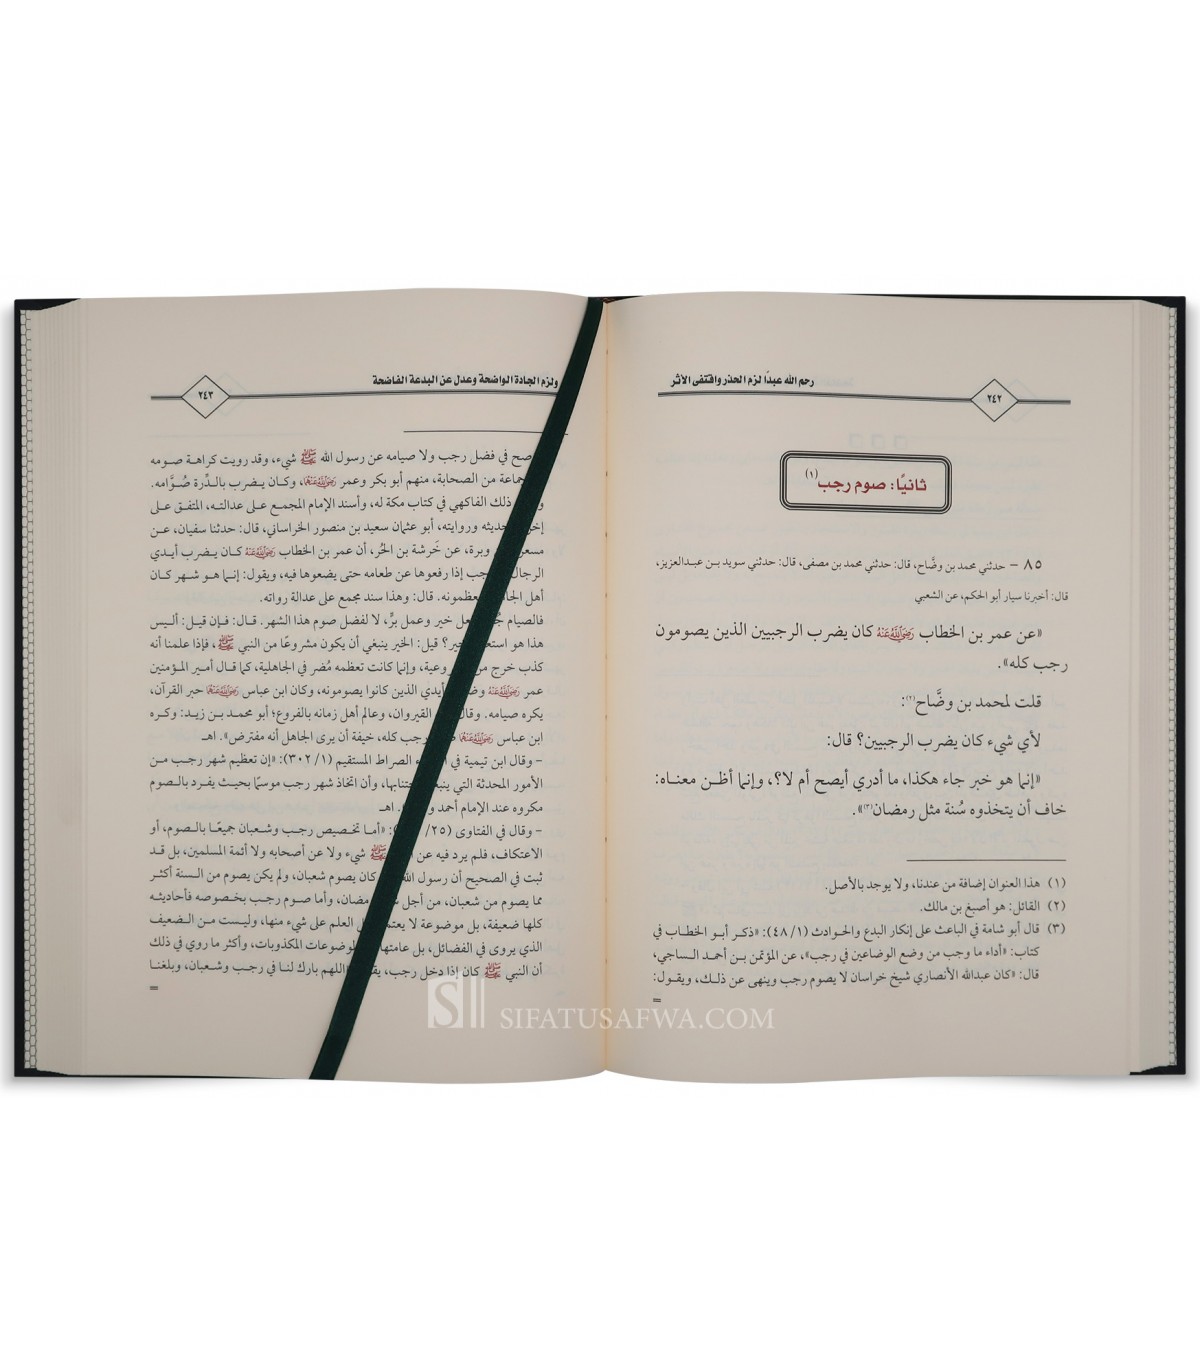 رحم الله عبدًا لزم الحذر واقتفى الأثر
٢٤٢
ثانيًا: صوم رجب(١)
٨٥ - حدثني محمد بن وضَّاح، قال: حدثني محمد بن مصفى، قال: حدثني سويد بن عبدالعزيز،
قال: أخبرنا سيار أبو الحكم، عن الشعبي
«عن عمر بن الخطاب رَضِيَ اللَّهُ عَنْهُ كان يضرب الرجبيين الذين يصومون
رجب كله».
قلت لمحمد بن وضَّاح(٢):
لأي شيء كان يضرب الرجبيين؟ قال:
«إنما هو خبر جاء هكذا، ما أدري أيصح أم لا؟، وإنما أظن معناه:
خاف أن يتخذوه سُنة مثل رمضان(٣)».
(١) هذا العنوان إضافة من عندنا، ولا يوجد بالأصل.
(٢) القائل: هو أصبغ بن مالك.
(٣) قال أبو شامة في الباعث على إنكار البدع والحوادث (١/ ٤٨): «ذكر أبو الخطاب في
كتاب: «أداء ما وجب من وضع الوضاعين في رجب»، عن المؤتمن بن أحمد الساجي،
قال: «كان عبدالله الأنصاري شيخ خراسان لا يصوم رجب وينهى عن ذلك، ويقول:
=
ولزم الجادة الواضحة وعدل عن البدعة الفاضحة
٢٤٣
صح في فضل رجب ولا صيامه عن رسول الله ﷺ شيء، وقد رويت كراهة صومه
جماعة من الصحابة، منهم أبو بكر وعمر رَضِيَ اللَّهُ عَنْهُمَا، وكان يضرب بالدِّرة صُوَّامه.
ذلك الفاكهي في كتاب مكة له، وأسند الإمام المجمع على عدالته، المتفق على
حديثه وروايته، أبو عثمان سعيد بن منصور الخراساني، قال: حدثنا سفيان، عن
مسعر وبرة، عن خَرشة بن الحُر، أن عمر بن الخطاب رَضِيَ اللَّهُ عَنْهُ كان يضرب أيدي
الرجال جب إذا رفعوها عن طعامه حتى يضعوها فيه، ويقول: إنما هو شهر كان
أهل يعظمونه. قال: وهذا سند مجمع على عدالة رواته.
فالصيام عل خير وعمل برٍّ، لا لفضل صوم هذا الشهر. قال: فإن قيل: أليس
هذا هو خير؟ قيل: الخير ينبغي أن يكون مشروعًا من النبي ﷺ، فإذا علمنا أنه
كذب خرج من وعية، وإنما كانت تعظمه مُضر في الجاهلية، كما قال أمير المؤمنين
عمر رَضِيَ اللَّهُ عَنْهُ أيدي الذين كانوا يصومونه، وكان ابن عباس رَضِيَ اللَّهُ عَنْهُمَا حبر القرآن،
يكره صيامه. وقال القيروان، وعالم أهل زمانه بالفروع؛ أبو محمد بن زيد: وكره
ابن عباس رَضِيَ اللَّهُ عَنْهُمَا رجب كله، خيفة أن يرى الجاهل أنه مفترض». اهـ
- وقال ابن تيمية في الصراط المستقيم (١/ ٣٠٢): «إن تعظيم شهر رجب من
الأمور المحدثة التي اجتنابها، وأن اتخاذ شهر رجب موسمًا بحيث يفرد بالصوم
مكروه عند الإمام أحمد اهـ
- وقال في الفتاوى (٢٥/ : «أما تخصيص رجب وشعبان جميعًا بالصوم، أو
الاعتكاف، فلم يرد فيه عن ﷺ شيء ولا عن أصحابه ولا أئمة المسلمين، بل قد
ثبت في الصحيح أن رسول الله كان يصوم شعبان، ولم يكن يصوم من السنة أكثر
مما يصوم من شعبان، من أجل رمضان، وأما صوم رجب بخصوصه فأحاديثه
كلها ضعيفة، بل موضوعة لا العلم على شيء منها، وليست من الضعيف
الذي يروى في الفضائل، بل عامتها الموضوعات المكذوبات، وأكثر ما روي في ذلك
أن النبي ﷺ كان إذا دخل رجب، اللهم بارك لنا في رجب وشعبان، وبلغنا
=
SIFATUSAFWA.COM